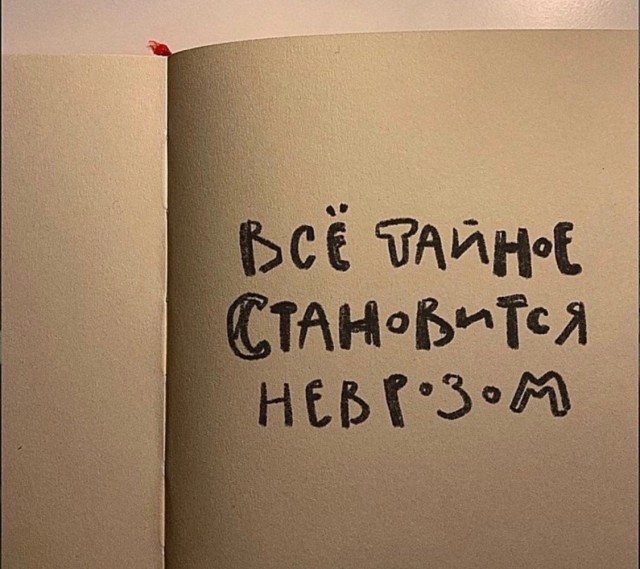 ВСЁ ТАЙНОЕ
СТАНОВИТСЯ
НЕВРОЗОМ